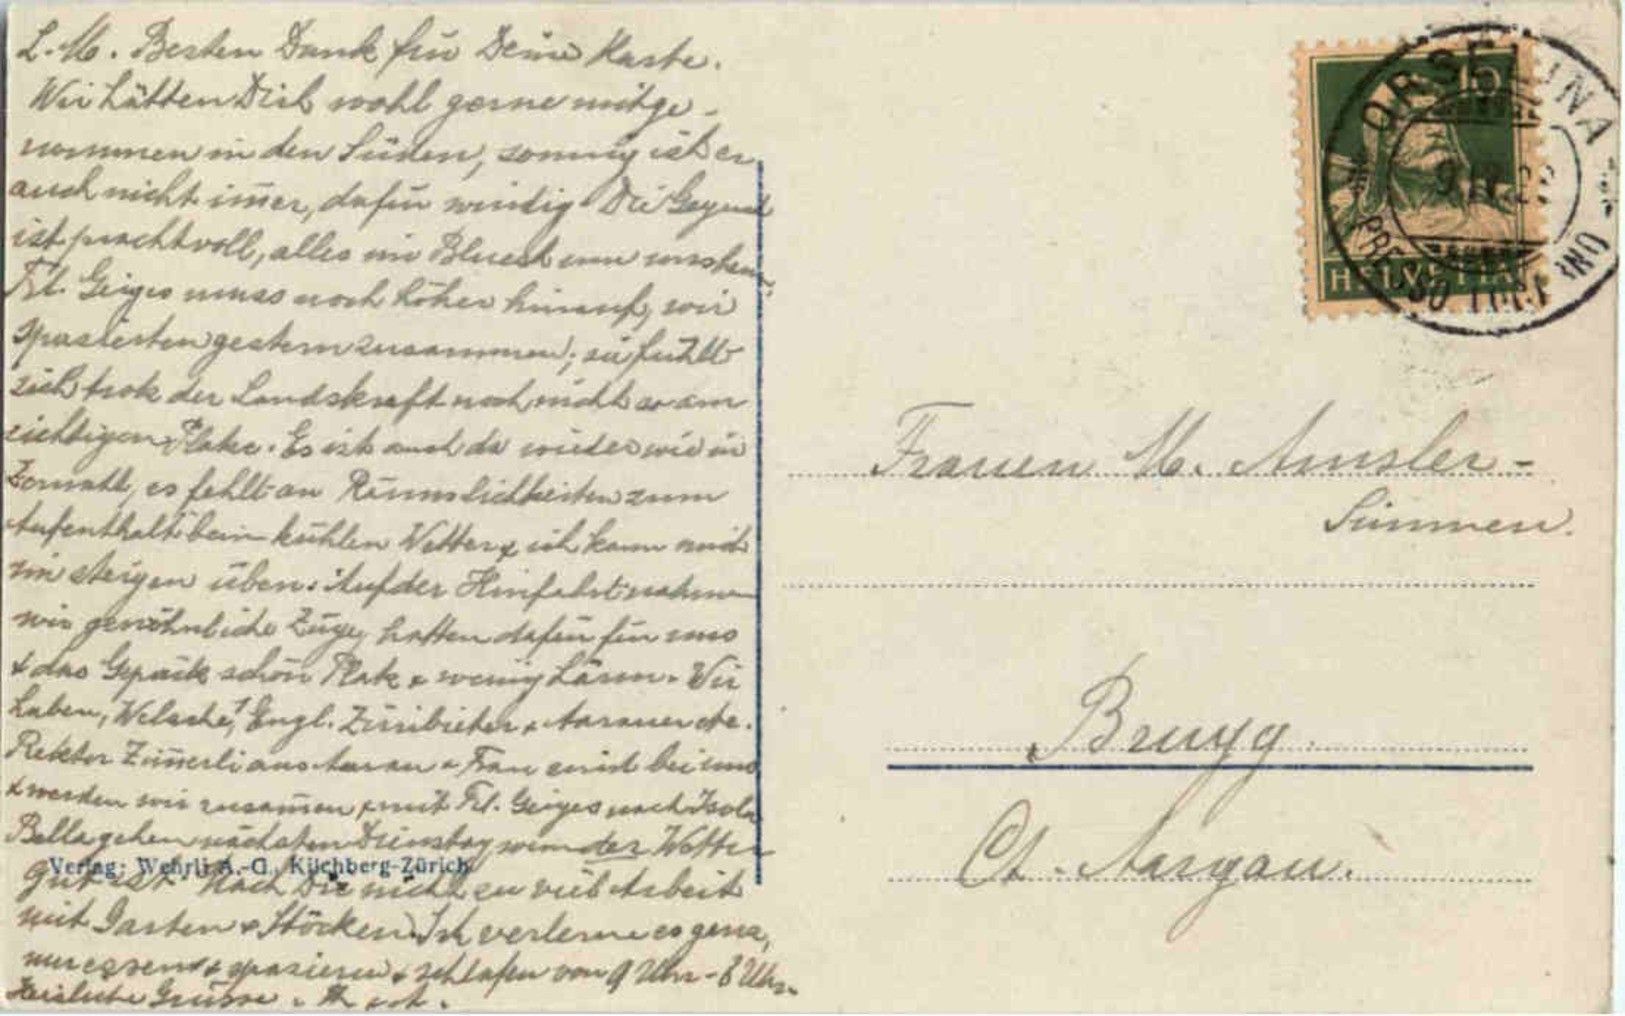 L. M. Besten Dank für Deine Karte.
Wir hätten Dich wohl gerne mitge-
nommen in den Süden, sonnig ist er
auch nicht im̅er, dafür windig. Die Gegend
ist prachtvoll, alles im Bluest um uns herum.
Frl. Geiges muss noch höher hinauf, wir
spazierten gestern zusammen, sie fühlt
sich trotz der Landskraft noch nicht so am
richtigen Platze. Es ist auch da wieder wie in
Zermatt, es fehlt an Räumlichkeiten zum
Aufenthalt beim kühlen Wetter & ich kann mich
im steigen üben. Auf der Hinfahrt nahmen
wir gewöhnliche Züge, hatten dafür für uns
& das Gepäck schön Platz & wenig Lärm. Wir
haben, Welsche, Engl. Züribieter & Aarauer etc.
Rektor Zim̅erli aus Aarau & Frau sind bei uns
& werden wir zusam̅en & mit Frl. Geiges nach Isola
Bella gehen nächsten Dienstag wenn das Wetter
gut ist. Mach Dir nicht zu viel Arbeit
mit Garten & Stöcken. Ich verlerne es ganz,
nur essen & spazieren & schlafen von 9 Uhr - 8 Uhr.
Herzliche Grüsse
Verlag: Wehrli A.-G., Kilchberg-Zürich
ORSELINA
PRESSO LOCARNO
10
HELVETIA
Frauen M. Amsler-
Simmen.
Brugg
Ct. Aargau.